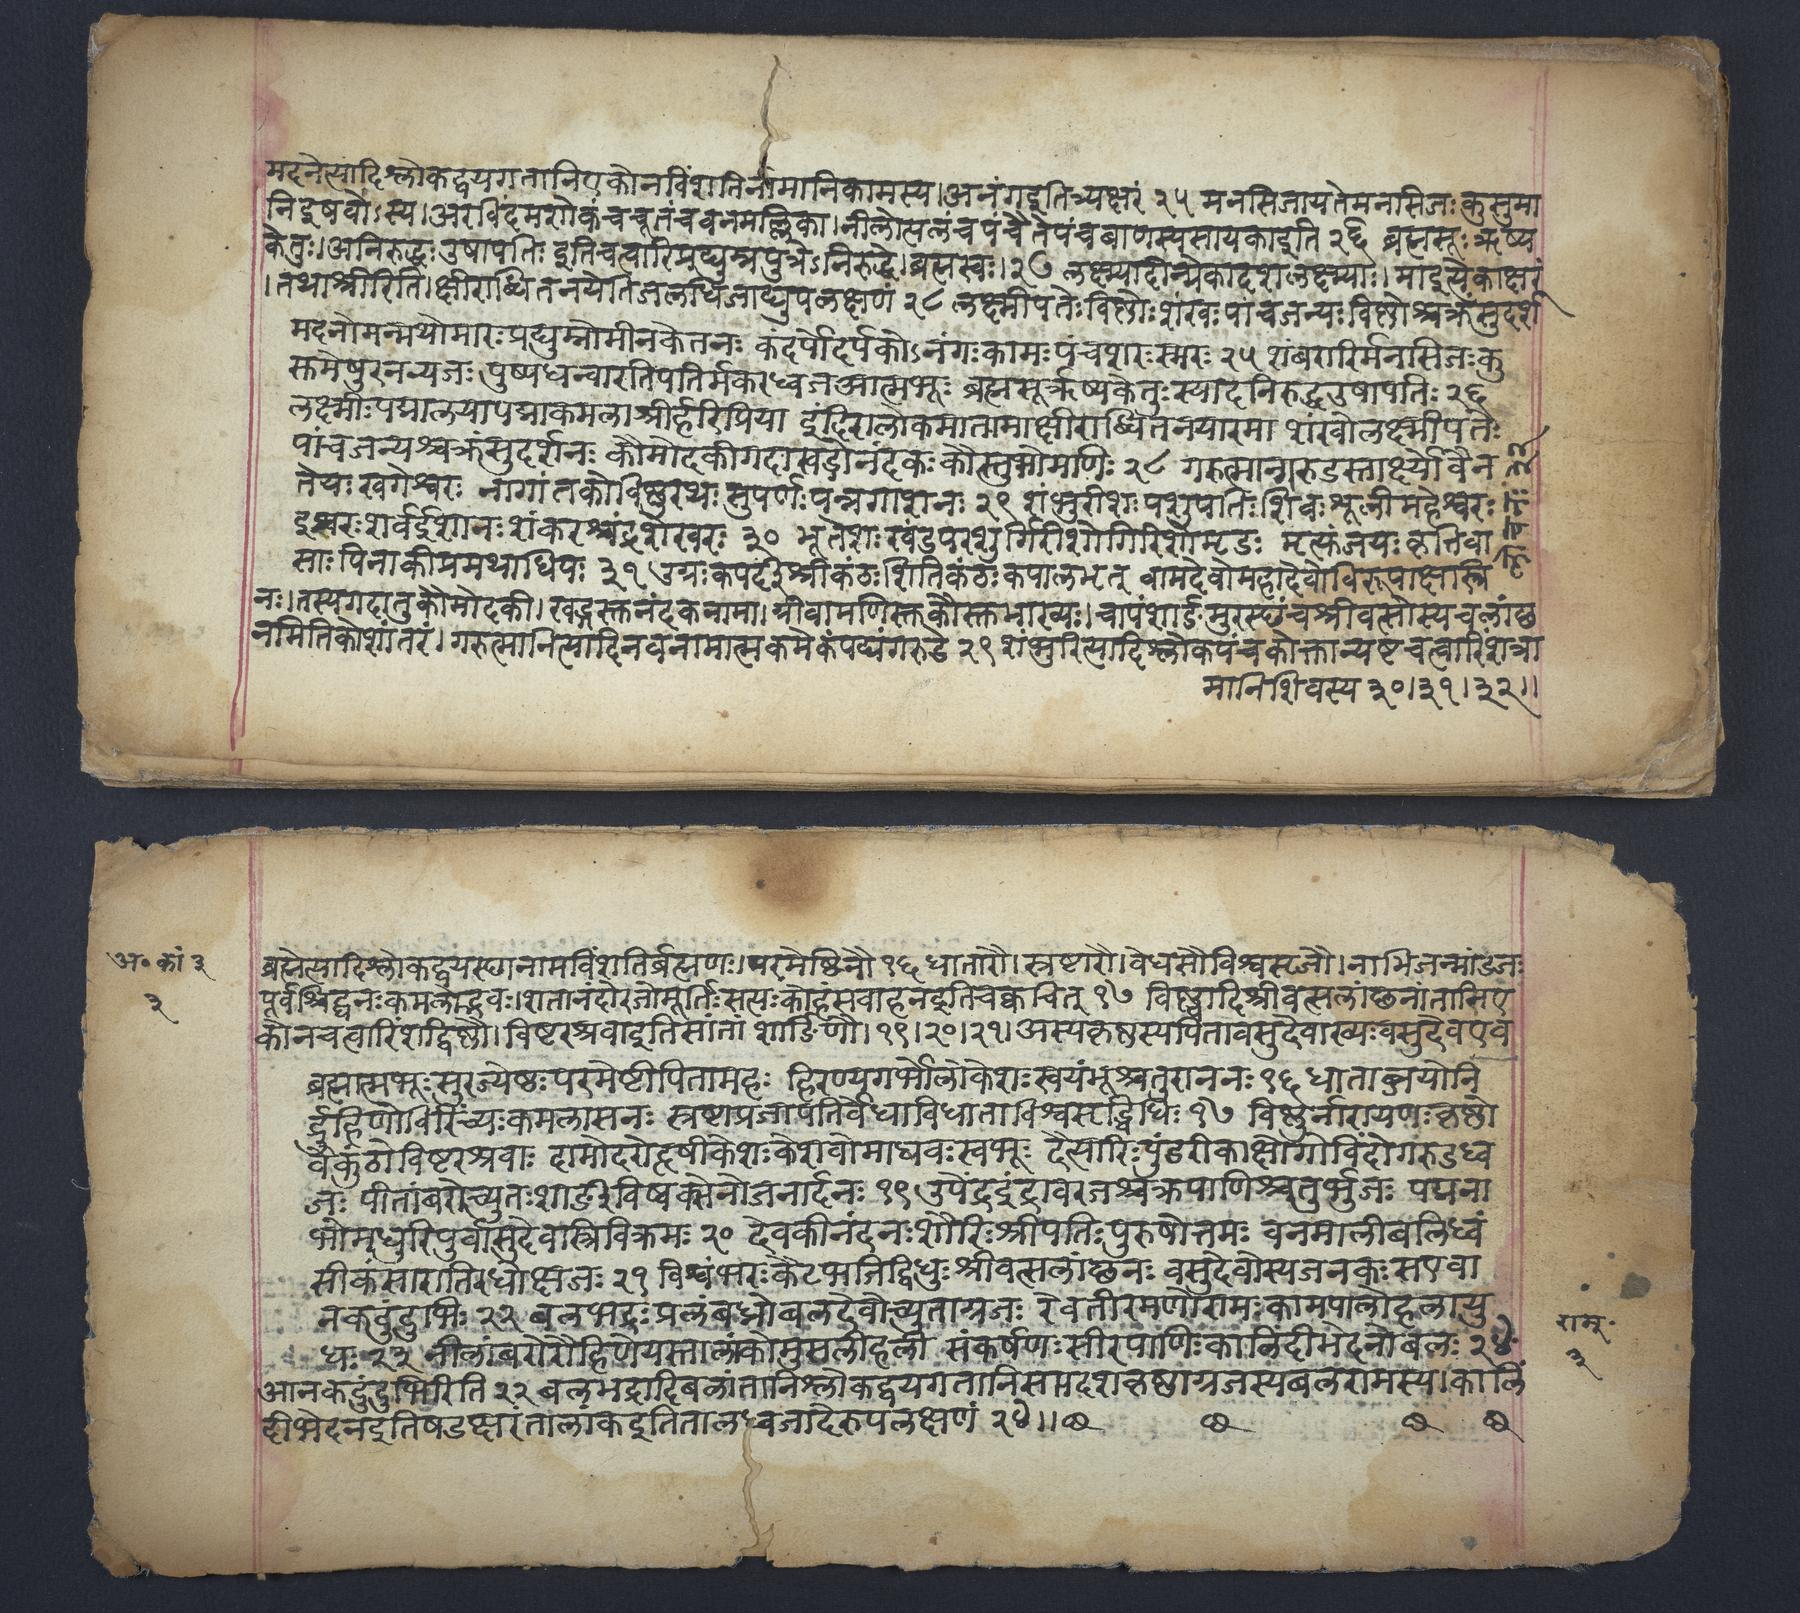 मदनेत्यादिश्लोकद्वयगतानिएकोनविंशतिर्नामानिकामस्य।अनंगइतित्र्यक्षरं २५ मनसिजायतेमनसिजः कुसुमा
निइषवोऽस्य।अरविंदमशोकंचचूतंचवनमल्लिका।नीलोत्पलंचपंचैतेपंचबाणस्यसायकाइति २६ ब्रह्मसूः ऋष्य
केतुः।अनिरुद्धः उषापतिः इतिचत्वारिप्रद्युम्नपुत्रेऽनिरुद्धे।ब्रह्मस्वः।२७ लक्ष्म्यादीन्येकादशलक्ष्म्याः।माइत्येकाक्षरं
।तथाश्रीरिति।क्षीराब्धितनयेतिजलधिजाद्युपलक्षणं २८ लक्ष्मीपतेःविष्णोःशंखःपांचजन्यःविष्णोश्चक्रंसुदर्श
मदनोमन्मथोमारःप्रद्युम्नोमीनकेतनः कंदर्पोदर्पकोऽनंगःकामःपंचशरःस्मरः २५ शंबरारिर्मनसिजःकु
सुमेषुरनन्यजः पुष्पधन्वारतिपतिर्मकरध्वजआत्मभूः ब्रह्मसूर्ऋष्यकेतुःस्यादनिरुद्धउषापतिः २६
लक्ष्मीःपद्मालयापद्माकमलाश्रीर्हरिप्रिया इंदिरालोकमातामाक्षीराब्धितनयारमा शंखोलक्ष्मीपतेः
पांचजन्यश्चक्रंसुदर्शनः कौमोदकीगदाखड्गोनंदकःकौस्तुभोमणिः २८ गरुत्मान्गरुडस्तार्क्ष्योवैन
तेयःखगेश्वरः नागांतकोविष्णुरथःसुपर्णःपन्नगाशनः २९ शंभुरीशःपशुपतिःशिवःशूलीमहेश्वरः
ईश्वरःशर्वईशानःशंकरश्चंद्रशेखरः ३० भूतेशःखंडपरशुर्गिरीशोगिरिशोमृडः मृत्युंजयःकृत्तिवा
साःपिनाकीप्रमथाधिपः ३१ उग्रःकपर्दीश्रीकंठःशितिकंठःकपालभृत् वामदेवोमहादेवोविरूपाक्षस्त्रि
नः।तस्यगदातुकौमोदकी।खड्गस्तुनंदकनामा।ग्रीवामणिस्तुकौस्तुभाख्यः।चापंशार्ङ्गंमुरस्घंचश्रीवत्सोस्यचलांछ
नमितिकोशांतरं।गरुत्मानित्यादिनवनामात्मकमेकंपद्यंगरुडे २९ शंभुरित्यादिश्लोकपंचकोक्तान्यष्टचत्वारिंशन्ना
मानिशिवस्य ३०।३१।३२।।
अ॰कां ३
३
ब्रह्मेत्यादिश्लोकद्वयस्घानामविंशतिर्ब्रह्मणः।परमेष्ठिनौ १६ धातारौ।स्रष्टारौ।वेधसौविश्वसृजौ।नाभिजन्मांडजः
पूर्वश्चिद्घनःकमलोद्भवः।शतानंदोरजोमूर्तिःसत्यःकोहंसवाहनइतिचक्वचित् १७ विष्ण्वादिश्रीवत्सलांछनांतासिए
कोनचत्वारिंशद्विष्णौ।विष्टरश्रवाइतिसांतां शार्ङिणौ।१९।२०।२१।अस्यकृष्णस्यपितावसुदेवाख्यःवसुदेवएव
ब्रह्मात्मभूःसुरज्येष्ठःपरमेष्टीपितामहः हिरण्यगर्भोलोकेशःस्वयंभूश्चतुराननः १६ धाताब्जयोनि
र्द्रुहिणोविरिंच्यःकमलासनः स्रष्टाप्रजापतिर्वेधाविधाताविश्वसृड्विधिः १७ विष्णुर्नारायणःकृष्णो
वैकुंठोविष्टरश्रवाः दामोदरोहृषीकेशःकेशवोमाधवःस्वभूः दैत्यारिःपुंडरीकाक्षोगोविंदोगरुडध्व
जः पीतांबरोच्युतःशार्ङीविष्वक्सेनोजनार्दनः १९ उपेंद्रइंद्रावरजश्चक्रपाणिश्चतुर्भुजः पद्मना
भोमधुरिपुर्वासुदेवस्त्रिविक्रमः २० देवकीनंदनःशौरिःश्रीपतिःपुरुषोत्तमः वनमालीबलिध्वं
सीकंसारातिरधोक्षजः २१ विश्वंभरःकैटभजिद्विधुःश्रीवत्सलांछनः वसुदेवोस्यजनकःसएवा
नकदुंदुभिः २२ बलभद्रःप्रलंबघ्नोबलदेवोच्युताग्रजः रेवतीरमणोरामःकामपालोहलायु
धः २३ नीलांबरोरौहिणेयस्तालांकोमुसलीहली संकर्षणःसीरपाणिःकालिंदीभेदनोबलः २४
रामः
३
आनकदुंदुभिरिति २२ बलभद्रादिबलांतानिश्लोकद्वयगतानिसप्तदशकृष्णाग्रजस्यबलरामस्य।कालिं
दीभेदनइतिषडक्षरंतालांकइतितालध्वजादेरुपलक्षणं २४।।